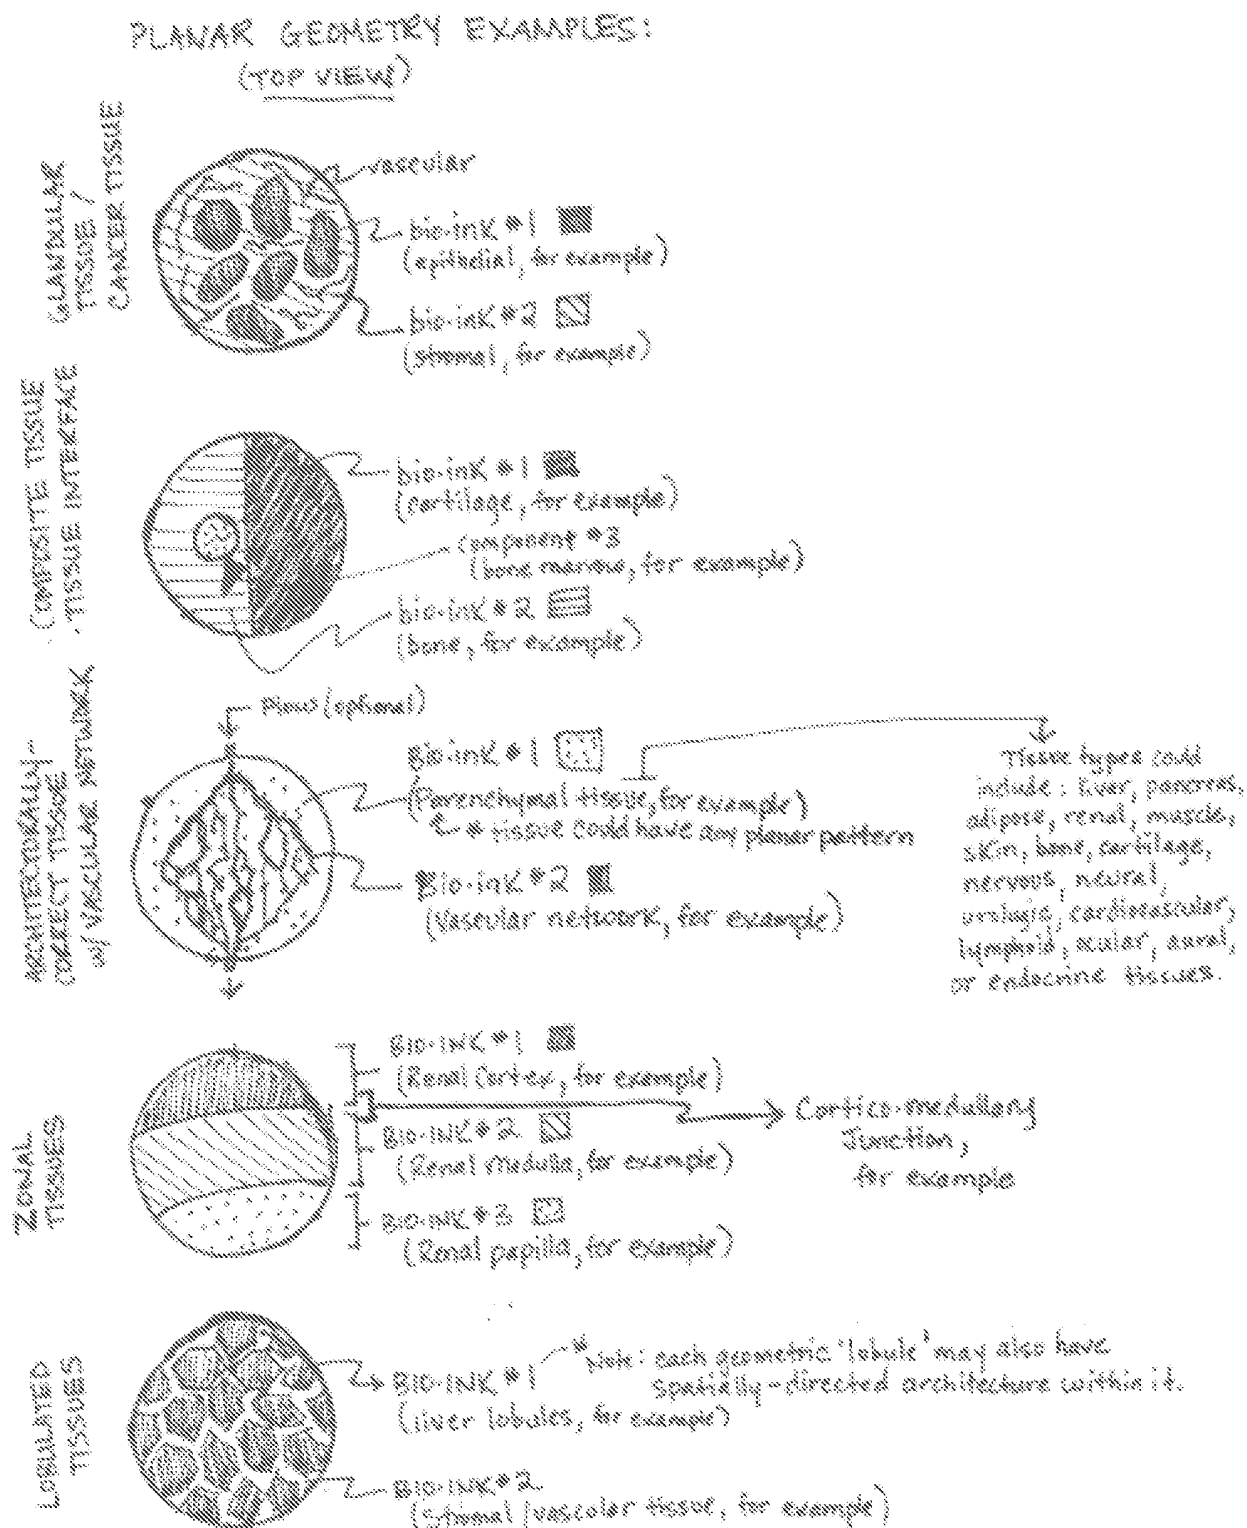 PLANAR GEOMETRY EXAMPLES:
(TOP VIEW)
GLANDULAR
TISSUE /
CANCER TISSUE
vascular
bio-ink #1
(epithelial, for example)
bio-ink #2
(stromal, for example)
· COMPOSITE TISSUE
· TISSUE INTERFACE
bio-ink #1
(cartilage, for example)
component #3
(bone marrow, for example)
bio-ink #2
(bone, for example)
ARCHITECTURALLY-
CORRECT TISSUE
w/ VASCULAR NETWORK
Flow (optional)
Bio-ink #1
(Parenchymal tissue, for example)
* tissue could have any planar pattern
Bio-ink #2
(Vascular network, for example)
Tissue types could
include: liver, pancreas,
adipose, renal, muscle,
skin, bone, cartilage,
nervous, neural,
urologic, cardiovascular,
lymphoid, ocular, aural,
or endocrine tissues.
ZONAL
TISSUES
BIO-INK #1
(Renal Cortex, for example)
BIO-INK #2
(Renal Medulla, for example)
BIO-INK #3
(Renal papilla, for example)
Cortico-medullary
Junction,
for example
LOBULATED
TISSUES
BIO-INK #1
(liver lobules, for example)
* Note: each geometric 'lobule' may also have
spatially-directed architecture within it.
BIO-INK #2
(Stromal/vascular tissue, for example)